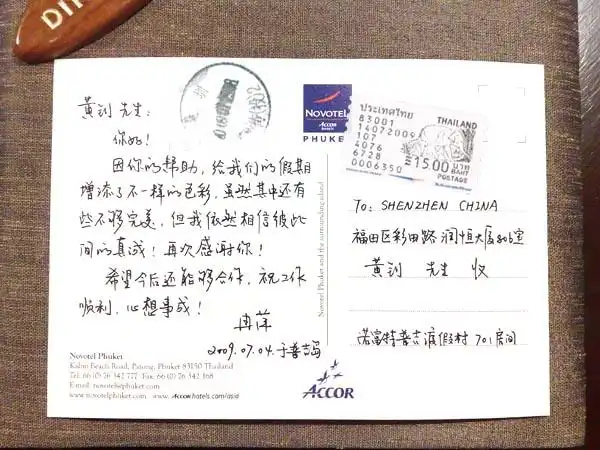 黄剑 先生：
你好！
因你的帮助，给我们的假期
增添了不一样的色彩，虽然其中还有
些不够完美，但我依然相信彼此
间的真诚！再次感谢你！
希望今后还能够合作，祝工作
顺利，心想事成！
冉萍
2009.07.04.于普吉岛
Novotel Phuket
Kalim Beach Road, Patong, Phuket 83150 Thailand
Tel: 66 (0) 76 342 777 Fax: 66 (0) 76 342 168
E-mail: novotel@phuket.com
www.novotelphuket.com www.Accorhotels.com/asia
NOVOTEL
ACCOR
hotels
PHUKET
Novotel Phuket and the surrounding island
ประเทศไทย
THAILAND
83001
14072009
107
4076
6728
0006350
15.00 บาท
BAHT
POSTAGE
To: SHENZHEN CHINA
福田区彩田路润恒大厦806室
黄剑 先生 收
诺富特普吉渡假村 701房间
ACCOR